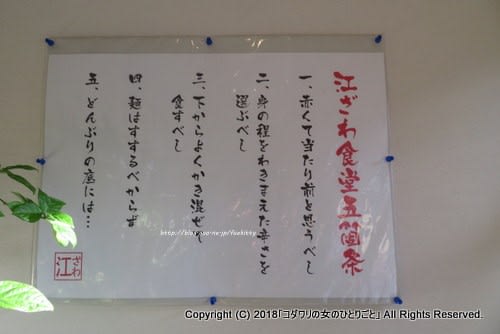 江ざわ食堂五箇条
一、赤くて当たり前と思うべし
二、身の程をわきまえた辛さを
選ぶべし
三、下からよくかき混ぜて
食すべし
四、麺はすするべからず
五、どんぶりの底には…
江ざわ
Copyright (C) 2018「コダワリの女のひとりごと」 All Rights Reserved.